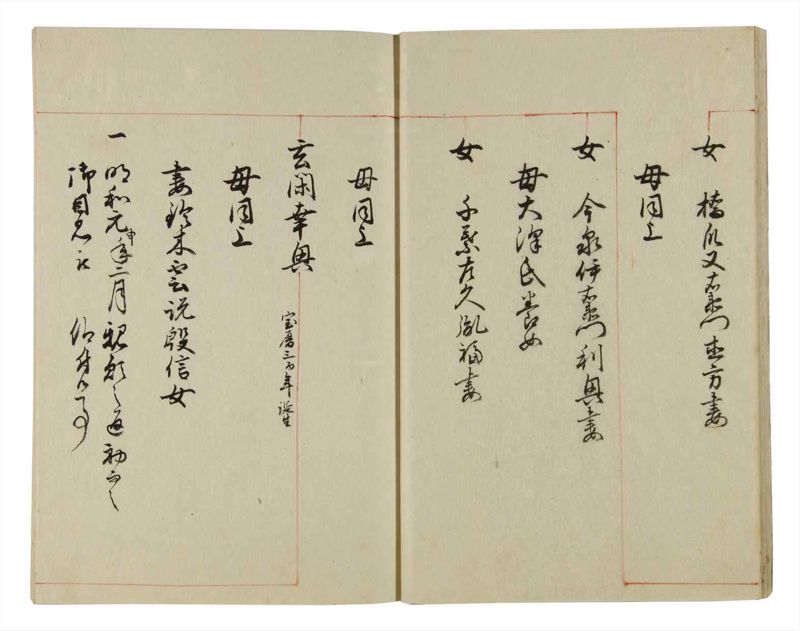 女 橋爪又右衛門直方妻
母同上
女 今泉伊右衛門利興妻
母大澤氏養女
女 千葉左久胤福妻
母同上
玄閑幸興 宝暦三酉年誕生
母同上
妻鈴木雲説殷信女
一明和元申年二月親願之通初而之
御目見被 仰付候事